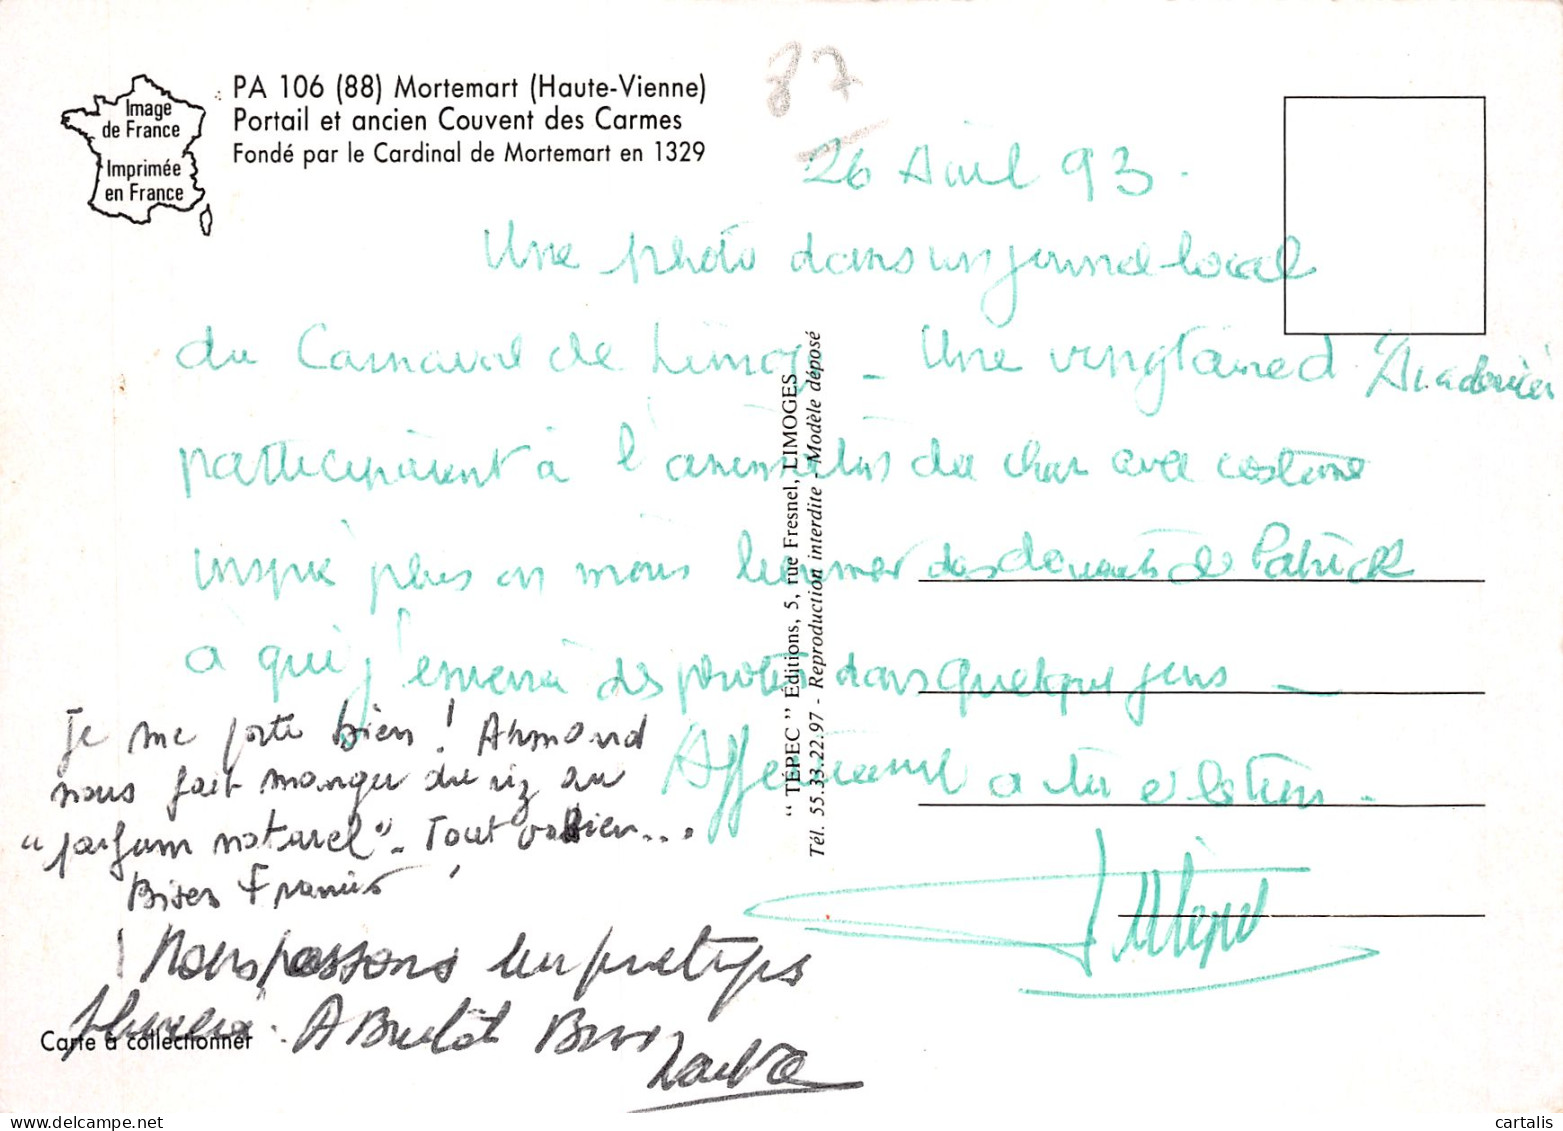 Image
de France
Imprimée
en France
PA 106 (88) Mortemart (Haute-Vienne)
Portail et ancien Couvent des Carmes
Fondé par le Cardinal de Mortemart en 1329
87
26 Avril 93.
Une photo dans un journal local
du Carnaval de Limoges _ Une vingtaine d'
participaient à l'animation du char avec costume
inspiré plus ou moins des de Patrick
à qui j'enverrai des photos dans quelques jours _
Affectueusement à toi et
Je me porte bien ! Armand
nous fait manger du riz au
"parfum naturel" - Tout va bien...
Bises Francis !
Nous passons
. A Bientôt Bises
"TÉPEC" Éditions, 5, rue Fresnel, LIMOGES
Tél. 55.33.22.97 - Reproduction interdite - Modèle déposé
Carte à collectionner
cartalis